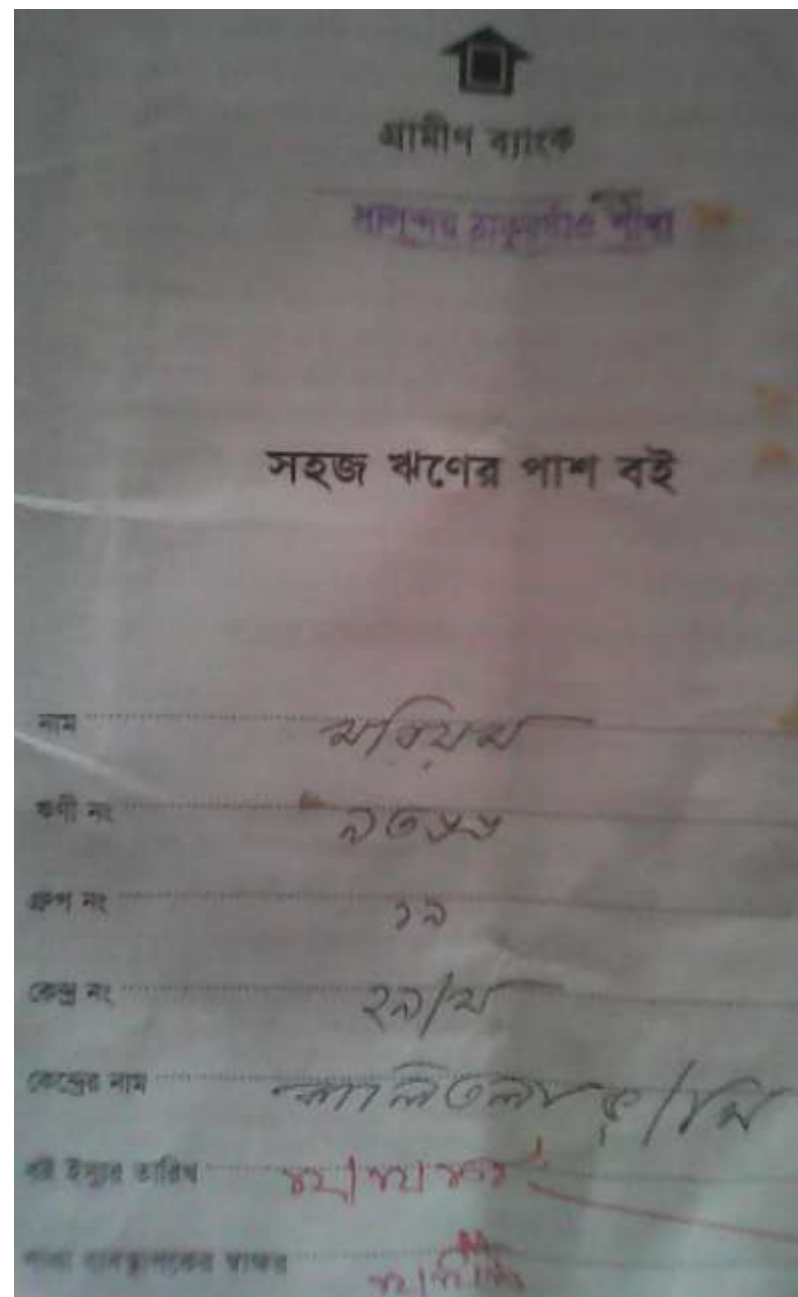 গ্রামীণ ব্যাংক
সালন্দর ঠাকুরগাঁও শাখা
সহজ ঋণের পাশ বই
নাম মরিয়ম
ঋণী নং ৯৩৬৬
গ্রুপ নং ১৯
কেন্দ্র নং ২৯/ম
কেন্দ্রের নাম
বই ইস্যুর তারিখ
শাখা ব্যবস্থাপকের স্বাক্ষর